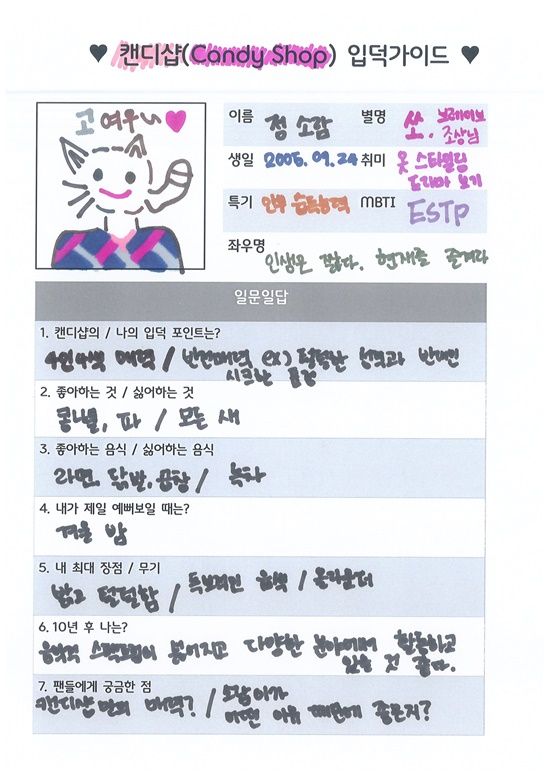 ♥ 캔디샵(Candy Shop) 입덕가이드 ♥
고 여우니 ♥
이름 정 소람 별명 쏘. 뽀레이뽀 조상님
생일 2005. 09. 24 취미 옷 스타일링 드라마 보기
특기 안무 습득능력 MBTI ESTP
좌우명 인생은 짧다. 현재를 즐겨라
일문일답
1. 캔디샵의 / 나의 입덕 포인트는?
4인4색 매력 / 반전매력 ex) 털털한 성격과 반대인
시크한 얼굴
2. 좋아하는 것 / 싫어하는 것
콩나물, 파 / 모든 새
3. 좋아하는 음식 / 싫어하는 음식
라면. 닭발. 곱창 / 녹차
4. 내가 제일 예뻐보일 때는?
겨울 밤
5. 내 최대 장점 / 무기
밝고 털털함 / 독보적인 음색 / 올라운더
6.10년 후 나는?
음악적 스펙트럼이 넓어지고 다양한 분야에서 활동하고
있을 것 같다.
7. 팬들에게 궁금한 점
캔디샵만의 매력? / 소람이가
어떤 이유 때문에 좋은지?